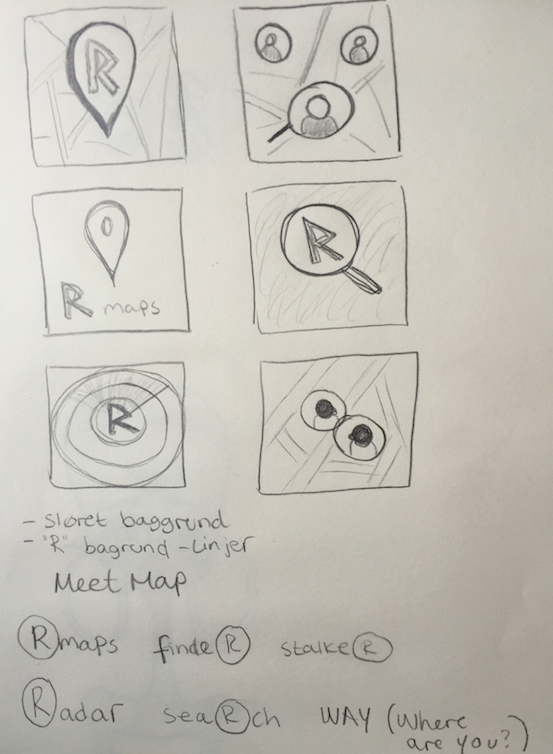 R
R maps
R
R
- sløret baggrund
- "R" bagrund - Linjer
Meet Map
Rmaps findeR stalkeR
Radar seaRch WAY (Where are you?)